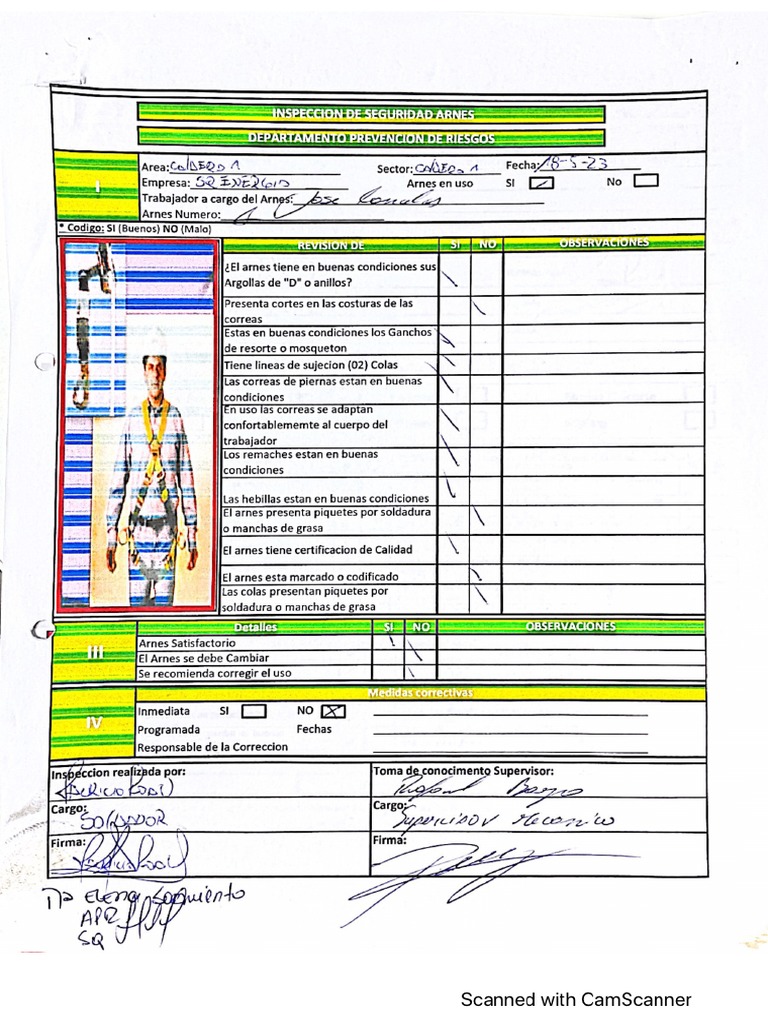 INSPECCION DE SEGURIDAD ARNES
DEPARTAMENTO PREVENCION DE RIESGOS
I
Area: CALDERA 1 Sector: CALDERA 1 Fecha: 18-5-23
Empresa: SQ ENERGIA Arnes en uso SI No
Trabajador a cargo del Arnes: Jose
Arnes Numero: 1
* Codigo: SI (Buenos) NO (Malo)
REVISION DE SI NO OBSERVACIONES
¿El arnes tiene en buenas condiciones sus
Argollas de "D" o anillos?
Presenta cortes en las costuras de las
correas
Estas en buenas condiciones los Ganchos
de resorte o mosqueton
Tiene lineas de sujecion (02) Colas
Las correas de piernas estan en buenas
condiciones
En uso las correas se adaptan
confortablememte al cuerpo del
trabajador
Los remaches estan en buenas
condiciones
Las hebillas estan en buenas condiciones
El arnes presenta piquetes por soldadura
o manchas de grasa
El arnes tiene certificacion de Calidad
El arnes esta marcado o codificado
Las colas presentan piquetes por
soldadura o manchas de grasa
III
Detalles SI NO OBSERVACIONES
Arnes Satisfactorio
El Arnes se debe Cambiar
Se recomienda corregir el uso
IV
Medidas correctivas
Inmediata SI NO X
Programada Fechas
Responsable de la Correccion
Inspeccion realizada por: Toma de conocimiento Supervisor:
Cargo: SOLDADOR Cargo: Supervisor Mecanico
Firma: Firma:
Mª Elena Sarmiento
APR
SQ
Scanned with CamScanner